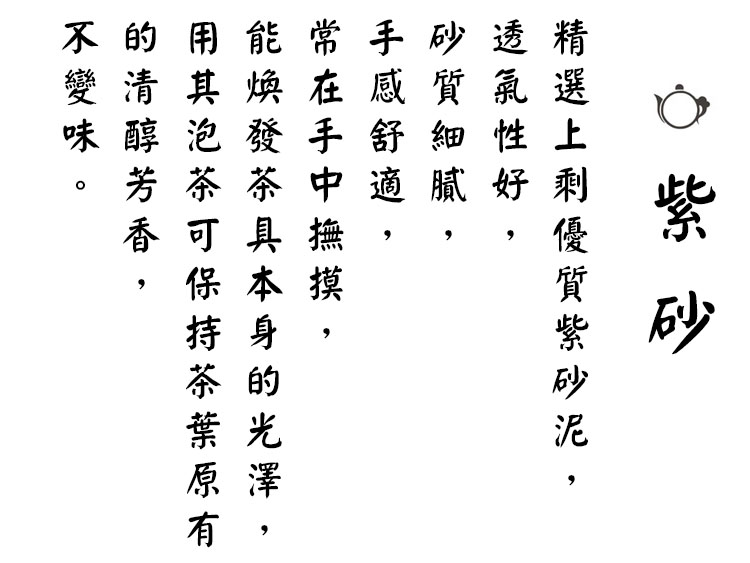 紫砂
精選上剩優質紫砂泥，
透氣性好，
砂質細膩，
手感舒適，
常在手中撫摸，
能煥發茶具本身的光澤，
用其泡茶可保持茶葉原有
的清醇芳香，
不變味。